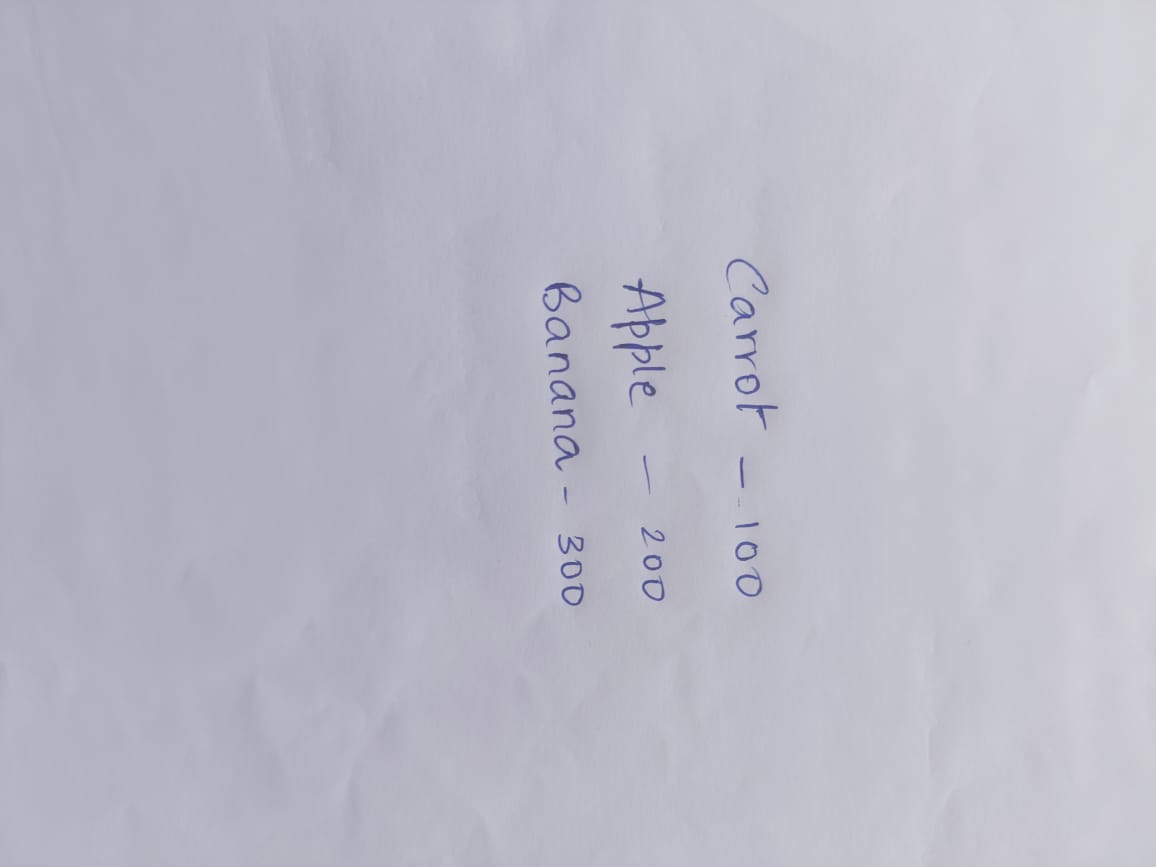 Carrot - 100
Apple - 200
Banana - 300